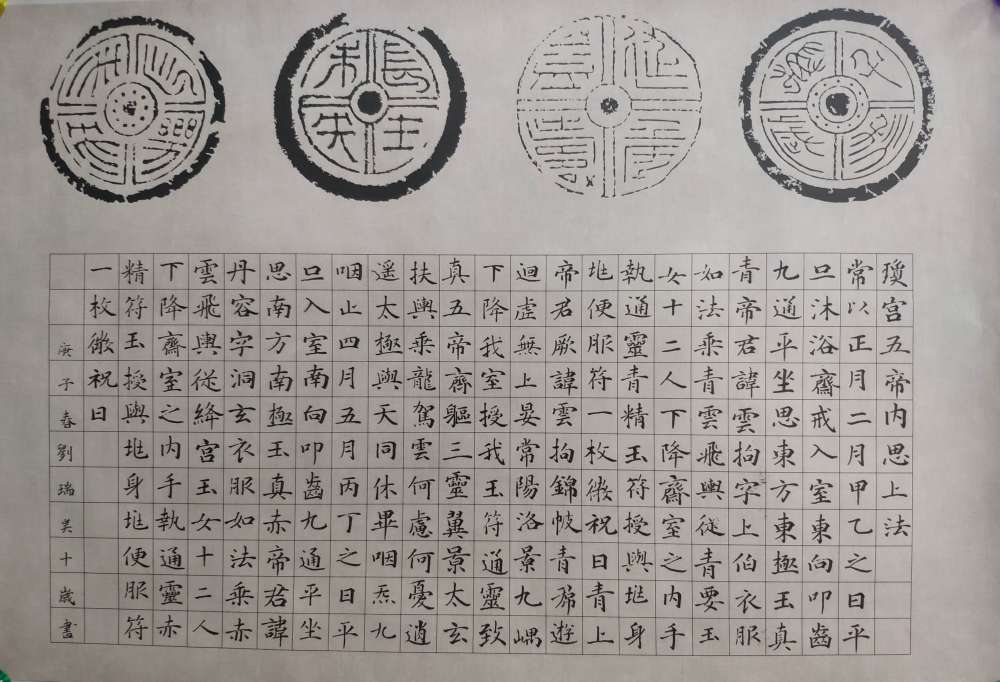 長生未央
瓊宫五帝内思上法
常以正月二月甲乙之日平
旦沐浴齋戒入室東向叩齒
九通平坐思東方東極玉真
青帝君諱雲拘字上伯衣服
如法乘青雲飛輿從青要玉
女十二人下降齋室之内手
執通靈青精玉符授與兆身
兆便服符一枚微祝曰青上
帝君厥諱雲拘錦帔青帬遊
迴虛無上晏常陽洛景九嵎
下降我室授我玉符通靈致
真五帝齊軀三靈翼景太玄
扶輿乘龍駕雲何慮何憂逍
遥太極與天同休畢咽炁九
咽止四月五月丙丁之日平
旦入室南向叩齒九通平坐
思南方南極玉真赤帝君諱
丹容字洞玄衣服如法乘赤
雲飛輿從絳宫玉女十二人
下降齋室之内手執通靈赤
精符玉授與兆身兆便服符
一枚微祝曰
庚子春劉瑞昊十歲書